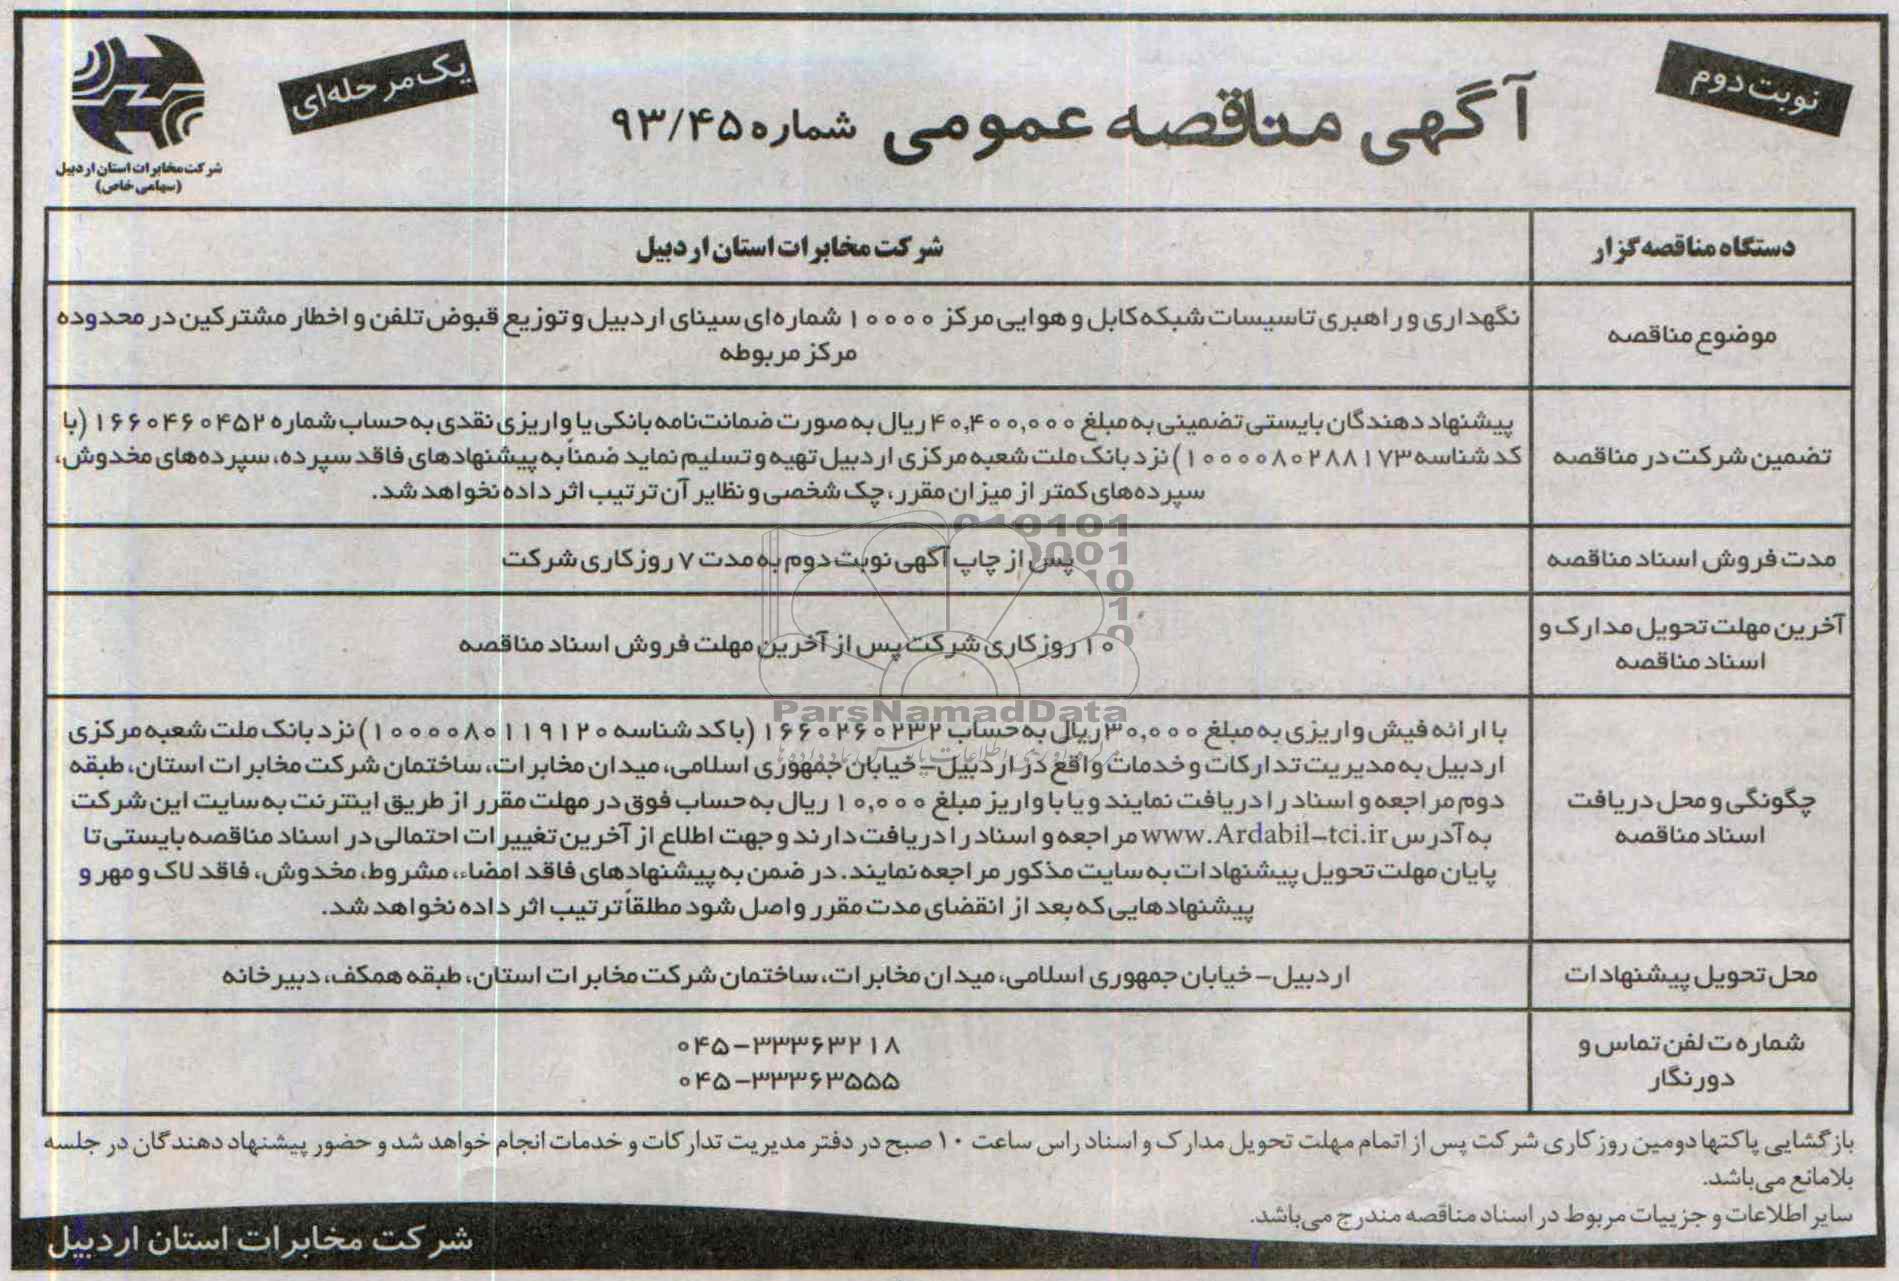 نوبت دوم
آگهی مناقصه عمومی شماره ۹۳/۴۵
یک مرحله‌ای
شرکت مخابرات استان اردبیل
(سهامی خاص)
دستگاه مناقصه گزار
شرکت مخابرات استان اردبیل
موضوع مناقصه
نگهداری و راهبری تاسیسات شبکه کابل و هوایی مرکز ۱۰۰۰۰ شماره‌ای سینای اردبیل و توزیع قبوض تلفن و اخطار مشترکین در محدوده
مرکز مربوطه
تضمین شرکت در مناقصه
پیشنهاد دهندگان بایستی تضمینی به مبلغ ۴۰,۴۰۰,۰۰۰ ریال به صورت ضمانت‌نامه بانکی یا واریزی نقدی به حساب شماره ۱۶۶۰۴۶۰۴۵۲ (با
کد شناسه ۱۰۰۰۰۸۰۲۸۸۱۷۳) نزد بانک ملت شعبه مرکزی اردبیل تهیه و تسلیم نماید ضمناً به پیشنهادهای فاقد سپرده، سپرده‌های مخدوش،
سپرده‌های کمتر از میزان مقرر، چک شخصی و نظایر آن ترتیب اثر داده نخواهد شد.
مدت فروش اسناد مناقصه
پس از چاپ آگهی نوبت دوم به مدت ۷ روز کاری شرکت
آخرین مهلت تحویل مدارک و
اسناد مناقصه
۱۰ روز کاری شرکت پس از آخرین مهلت فروش اسناد مناقصه
چگونگی و محل دریافت
اسناد مناقصه
با ارائه فیش واریزی به مبلغ ۳۰,۰۰۰ ریال به حساب ۱۶۶۰۲۶۰۲۳۲ (با کد شناسه ۱۰۰۰۰۸۰۱۱۹۱۲۰) نزد بانک ملت شعبه مرکزی
اردبیل به مدیریت تدارکات و خدمات واقع در اردبیل– خیابان جمهوری اسلامی، میدان مخابرات، ساختمان شرکت مخابرات استان، طبقه
دوم مراجعه و اسناد را دریافت نمایند و یا با واریز مبلغ ۱۰,۰۰۰ ریال به حساب فوق در مهلت مقرر از طریق اینترنت به سایت این شرکت
به آدرس www.Ardabil-tci.ir مراجعه و اسناد را دریافت دارند و جهت اطلاع از آخرین تغییرات احتمالی در اسناد مناقصه بایستی تا
پایان مهلت تحویل پیشنهادات به سایت مذکور مراجعه نمایند. در ضمن به پیشنهادهای فاقد امضاء، مشروط، مخدوش، فاقد لاک و مهر و
پیشنهادهایی که بعد از انقضای مدت مقرر واصل شود مطلقاً ترتیب اثر داده نخواهد شد.
محل تحویل پیشنهادات
اردبیل– خیابان جمهوری اسلامی، میدان مخابرات، ساختمان شرکت مخابرات استان، طبقه همکف، دبیرخانه
شماره ت لفن تماس و
دورنگار
۰۴۵–۳۳۳۶۳۲۱۸
۰۴۵–۳۳۳۶۳۵۵۵
بازگشایی پاکتها دومین روز کاری شرکت پس از اتمام مهلت تحویل مدارک و اسناد راس ساعت ۱۰ صبح در دفتر مدیریت تدارکات و خدمات انجام خواهد شد و حضور پیشنهاد دهندگان در جلسه
بلامانع می‌باشد.
سایر اطلاعات و جزییات مربوط در اسناد مناقصه مندرج می‌باشد.
شرکت مخابرات استان اردبیل
ParsNamadData